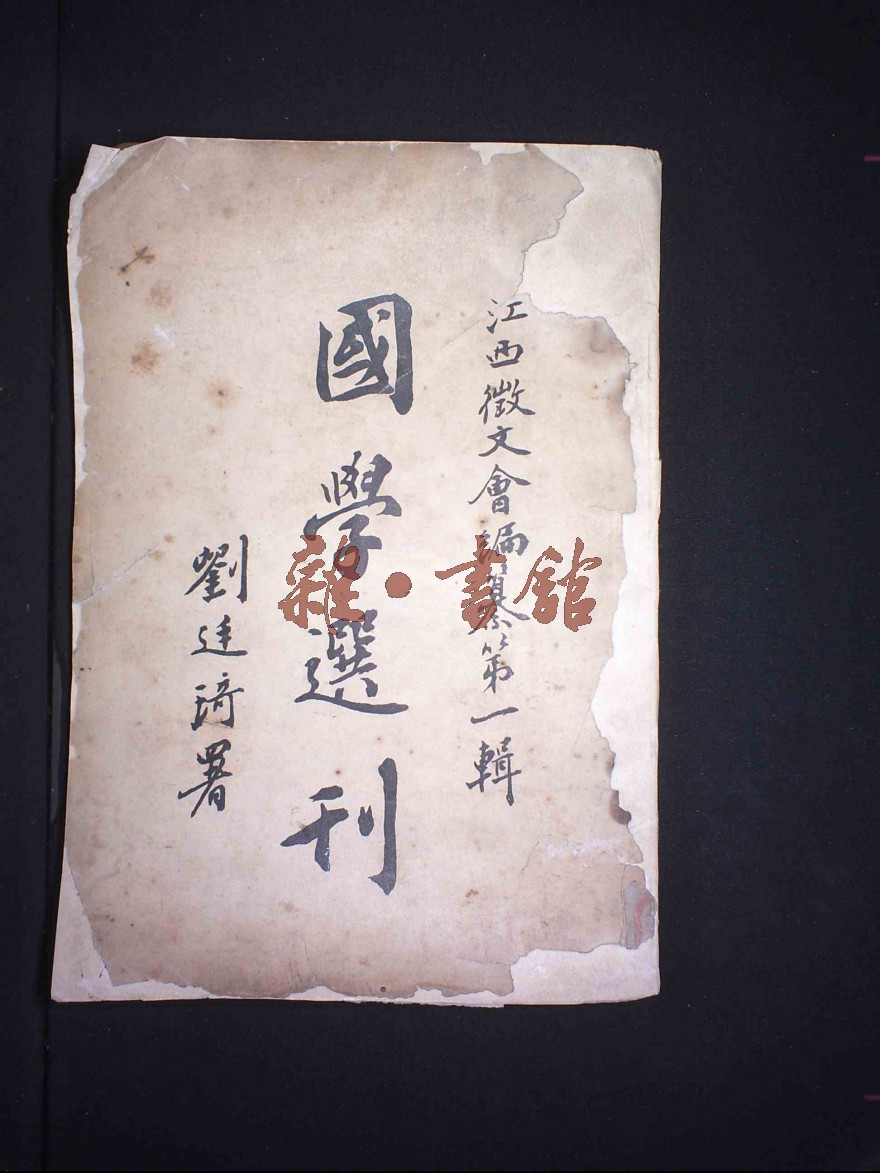 江西徵文會編纂第一輯
國學選刊
劉廷琦署
雜·書館